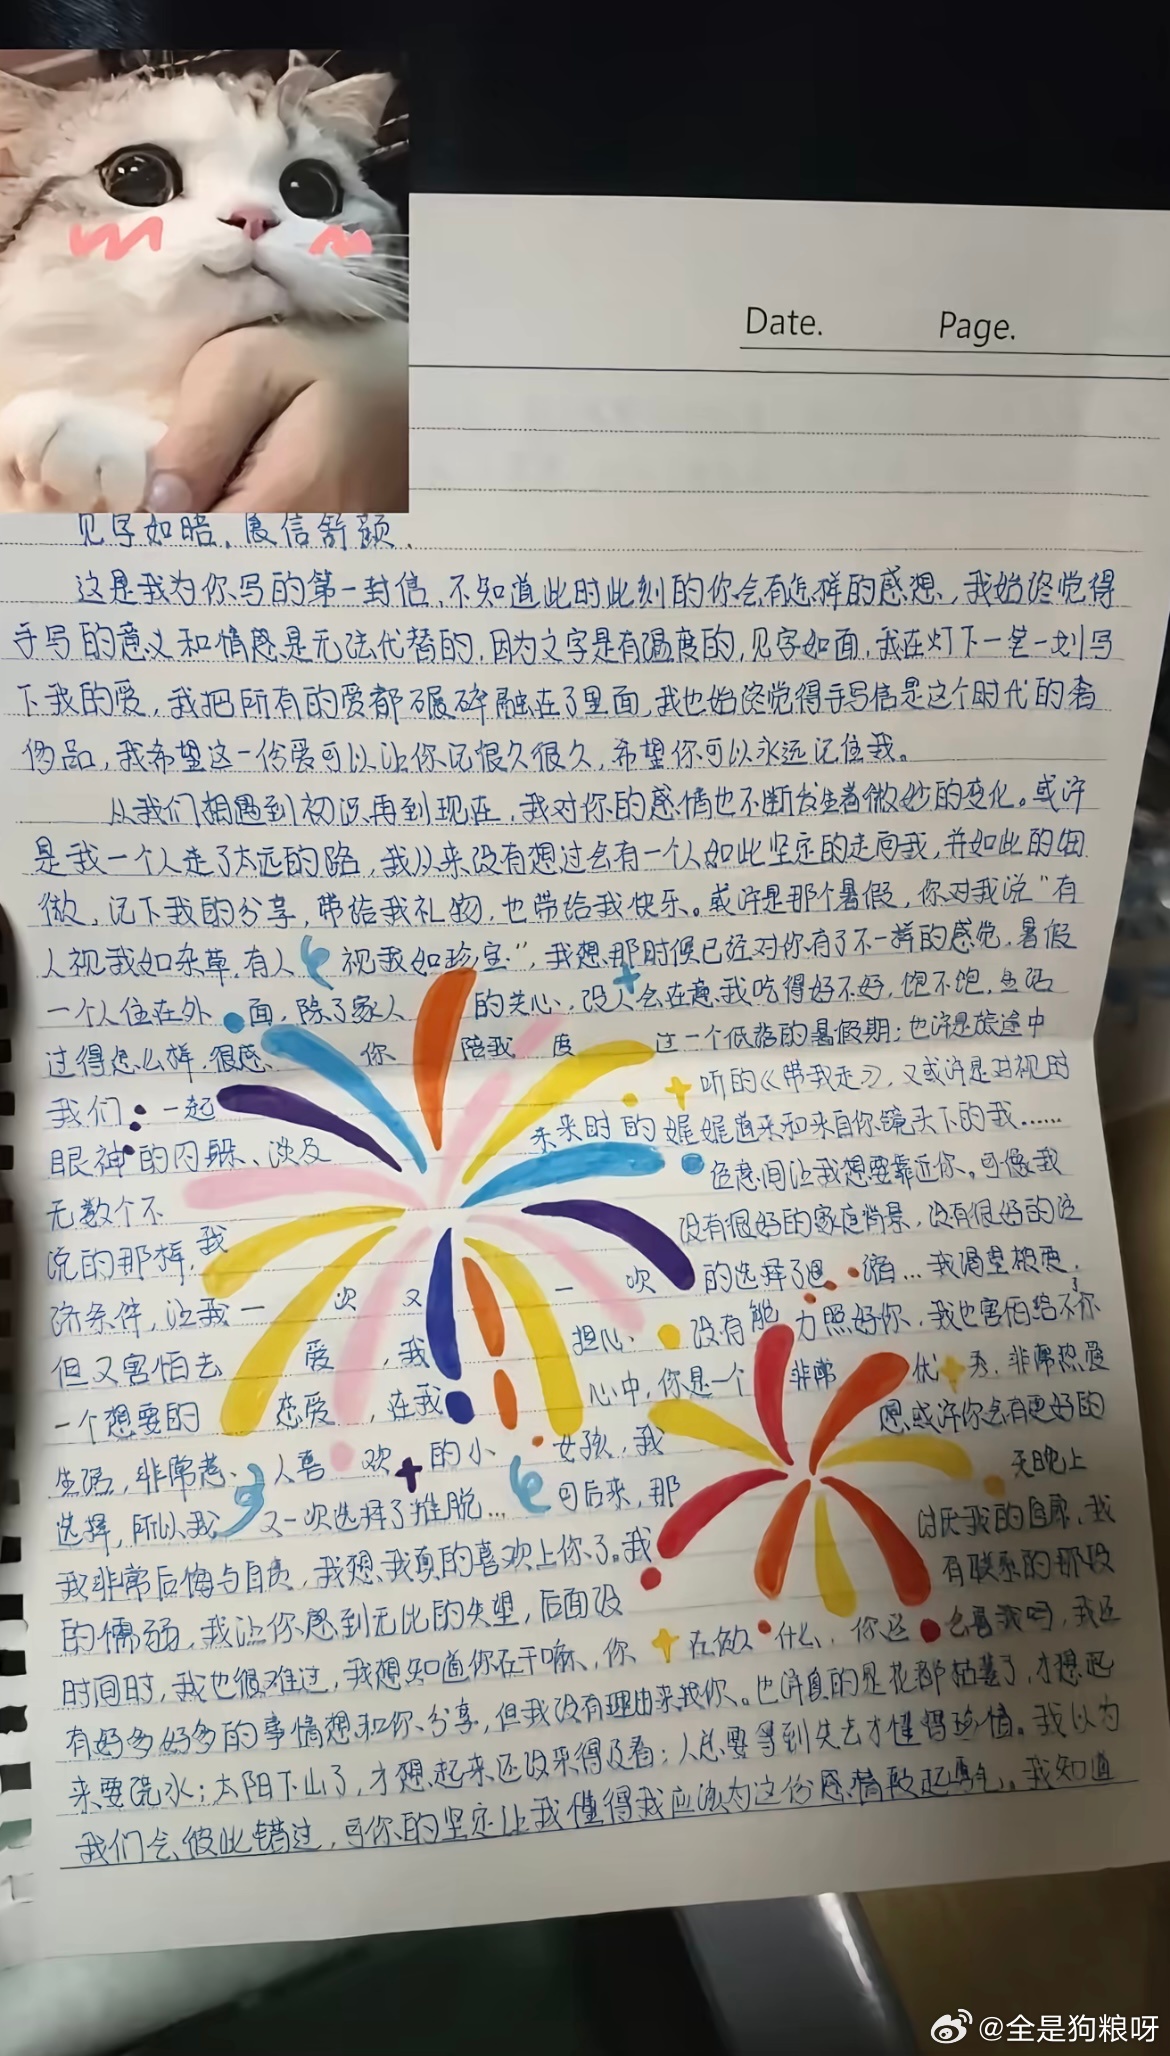 Date. Page.
见字如晤,展信舒颜.
这是我为你写的第一封信,不知道此时此刻的你会有怎样的感想,我始终觉得
手写的意义和情感是无法代替的,因为文字是有温度的,见字如面,我在灯下一笔一划写
下我的爱,我把所有的爱都碾碎融在了里面,我也始终觉得手写信是这个时代的奢
侈品,我希望这一份爱可以让你记很久很久,希望你可以永远记住我。
从我们相遇到初识再到现在,我对你的感情也不断发生着微妙的变化。或许
是我一个人走了太远的路,我从来没有想过会有一个人如此坚定的走向我,并如此的细
微,记下我的分享,带给我礼物,也带给我快乐。或许是那个暑假,你对我说“有
人视我如杂草,有人视我如珍宝”,我想那时候已经对你有了不一样的感觉,暑假
一个人住在外面,除了家人的关心,没人会在意我吃得好不好,饱不饱,生活
过得怎么样,很感你陪我度过一个低落的暑假期;也许是旅途中
我们一起听的《带我走》,又或许是对视时
眼神的闪躲、谈及未来时的娓娓道来和来自你镜头下的我……
无数个不色意间让我想要靠近你。可像我
说的那样,我没有很好的家庭背景,没有很好的经
济条件,让我一次又一次的选择了退缩…我渴望被爱,
但又害怕去爱,我担心没有能力照好你,我也害怕给不了你
一个想要的恋爱,在我心中,你是一个非常优秀,非常热爱
生活,非常惹人喜欢的小女孩,我愿或许你会有更好的
选择,所以我又一次选择了推脱…可后来,那天晚上
我非常后悔与自责,我想我真的喜欢上你了。我讨厌我的自卑,我
的懦弱,我让你感到无比的失望,后面没有联系的那段
时间时,我也很难过,我想知道你在干嘛,你在做什么,你还会喜我吗,我还
有好多好多的事情想和你分享,但我没有理由来找你。也许真的是花都枯萎了,才想起
来要浇水;太阳下山了,才想起来还没来得及看;人总要等到失去才懂得珍惜。我以为
我们会彼此错过,可你的坚定让我懂得我应该为这份感情鼓起勇气。我知道
@全是狗粮呀